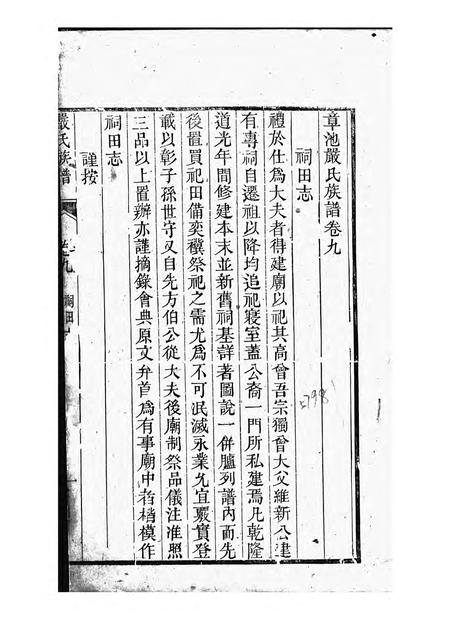 章池嚴氏族譜卷九
祠田志
禮於仕爲大夫者得建廟以祀其高曾吾宗獨曾大父維新公建
有專祠自遷祖以降均追祀寢室蓋公裔一門所私建焉凡乾隆
道光年間修建本末並新舊祠基詳著圖說一併臚列譜內而先
後置買祀田備奕禩祭祀之需尤爲不可泯滅永業允宜嚴實登
載以彰子孫世守又自先方伯公從大夫後廟制祭品儀注准照
三品以上置辦亦謹摘錄會典原文弁首爲有事廟中者楷模作
祠田志
謹按
嚴氏族譜
卷九
祠田志